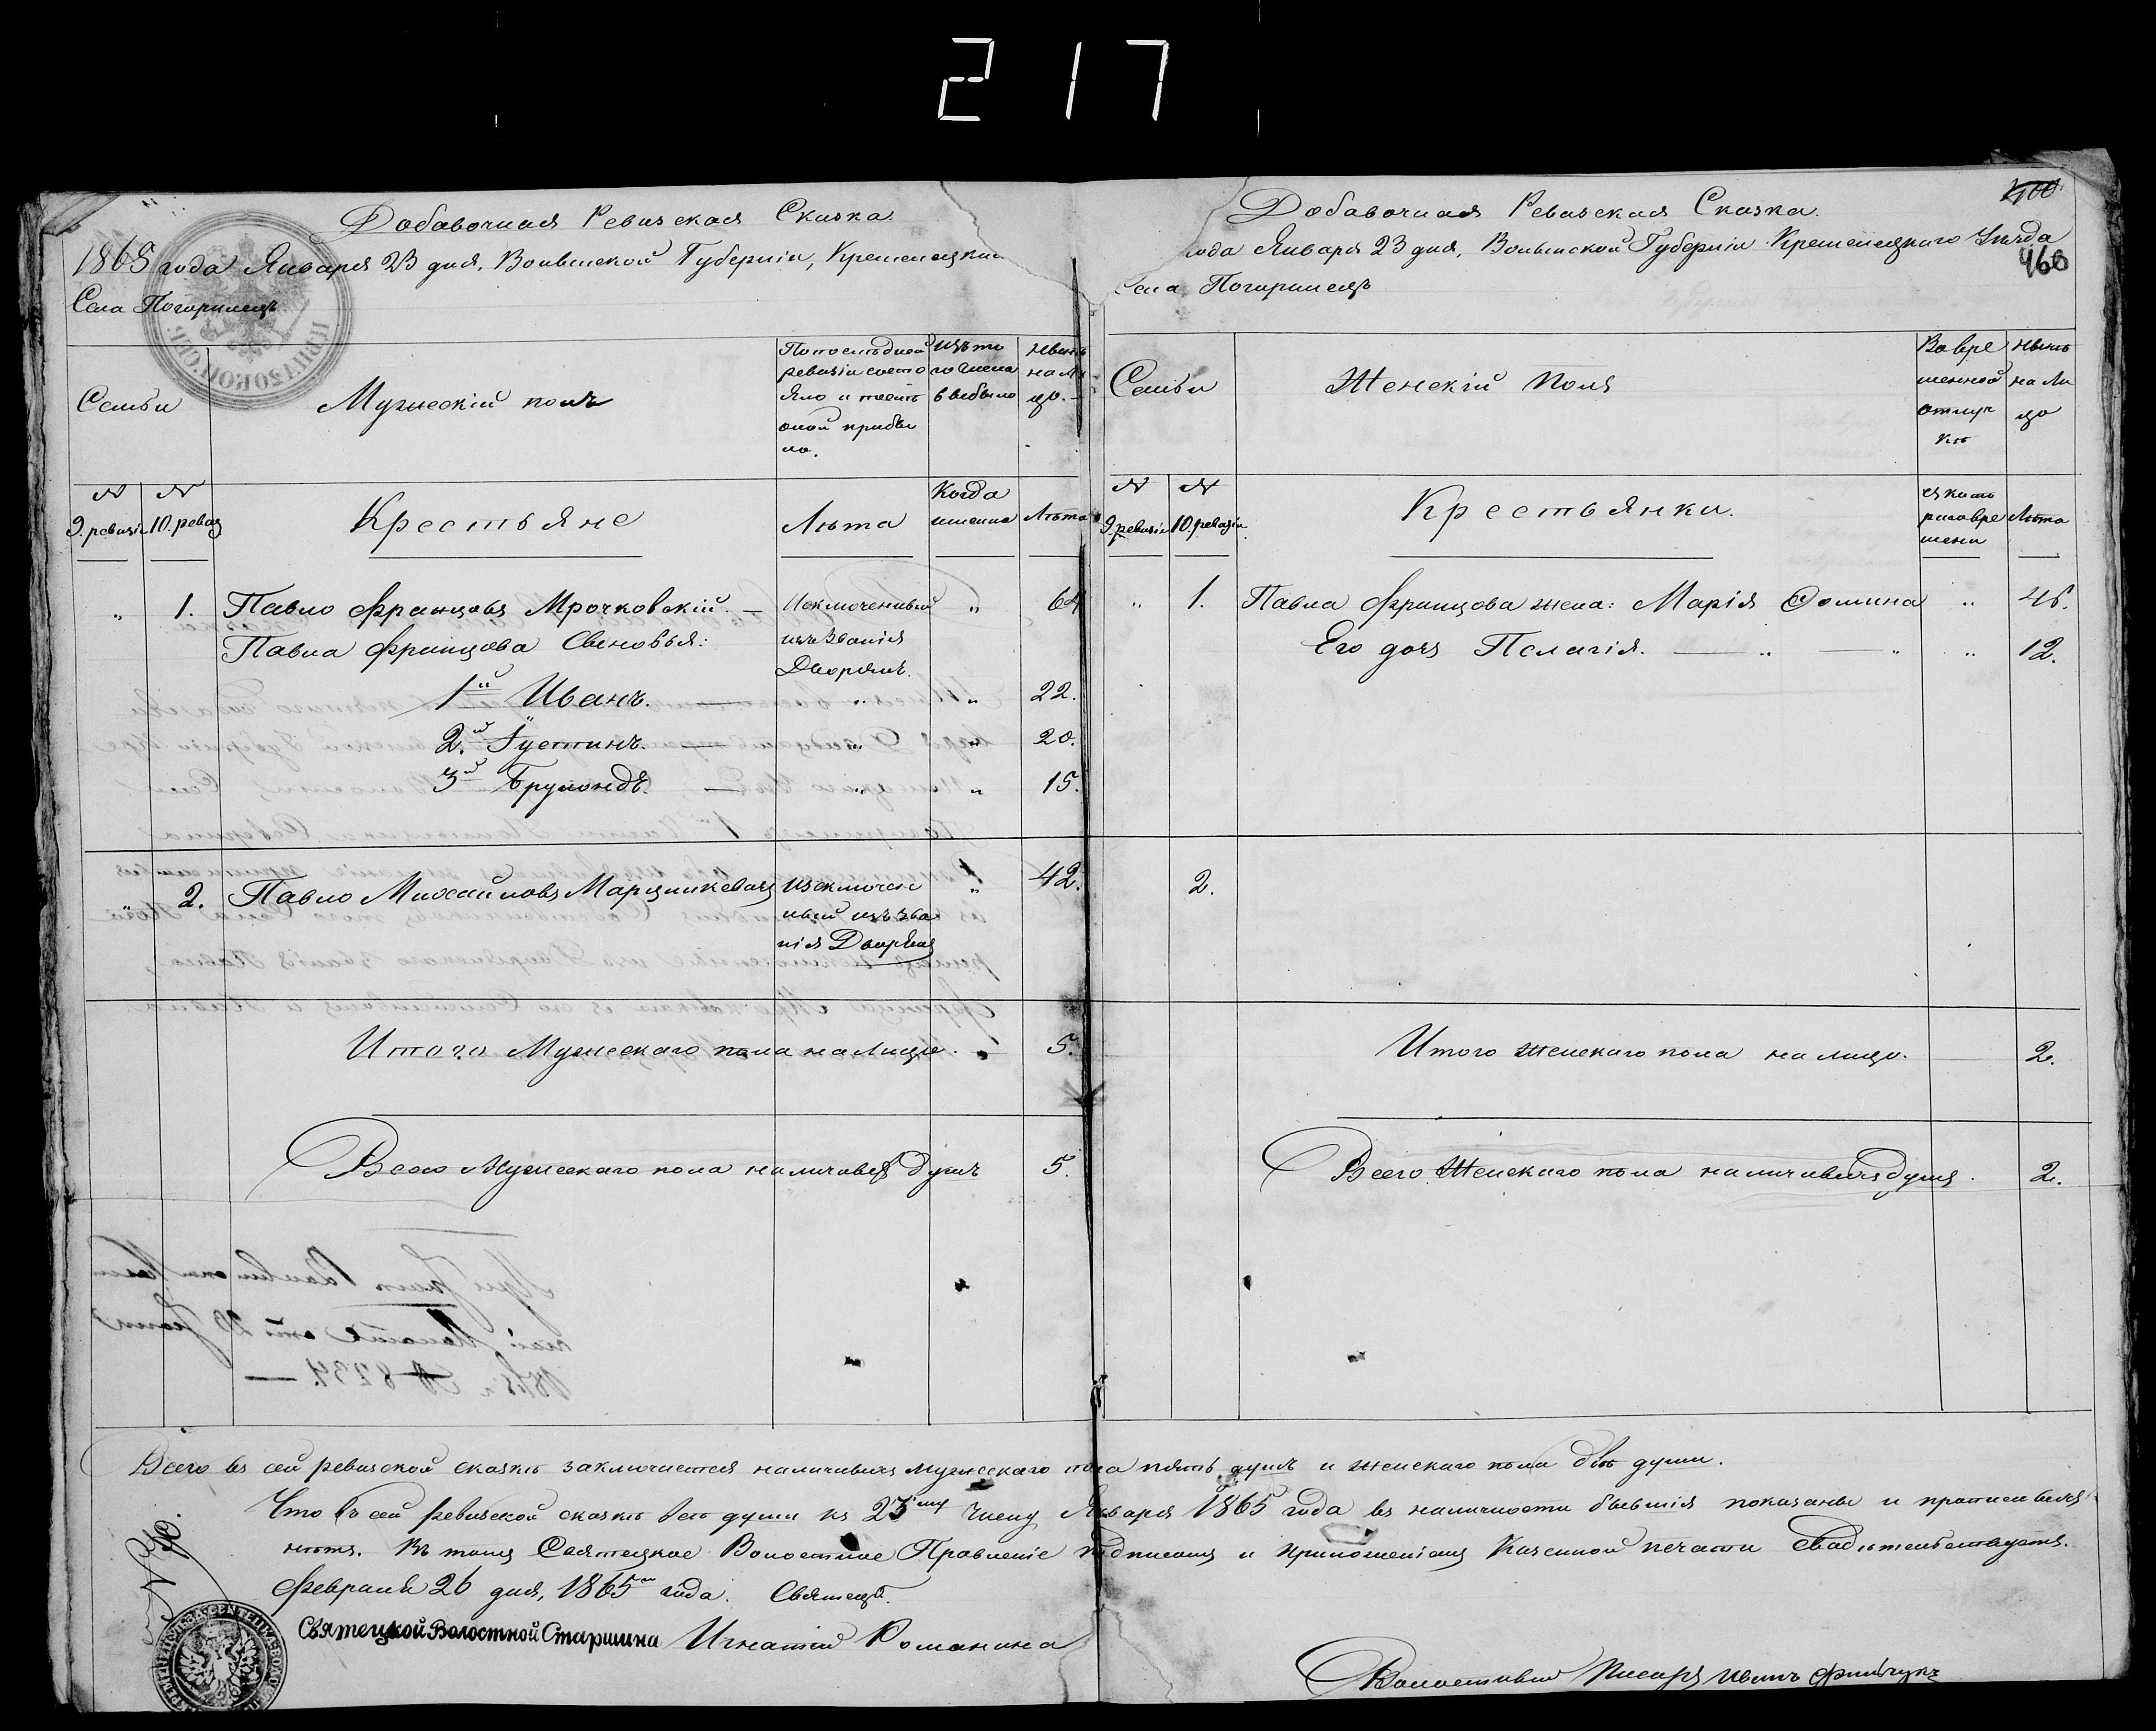 217
Добавочная Ревизская Сказка
1865 года Января 23 дня, Волынской Губерніи, Кременецкаго
Села Погорилецъ
Семьи
Мужескій полъ
По последней ревизіи состояло и после оной прибыло.
изъ того числа выбыло
ныне на лицо.
N 9. ревизіи
N 10. ревиз
Крестьяне
Лѣта
Когда именно
Лѣта
" 1. Павло Францовъ Мрочковскій. — Исключенный изъ званія Дворянъ. " 64
Павла Францова Сыновья:
1й Иванъ. — " " 22.
2.й Іустинъ. — " " 20.
3й Брумондъ. — " " 15.
" 2. Павло Михайловъ Марцинкевичъ изключенный изъ званія Дворянъ " 42.
Итого Мужескаго пола на лицо. 5.
Всего Мужескаго пола наличныхъ душъ 5.
400
460
Добавочная Ревизская Сказка.
года Января 23 дня, Волынской Губерніи Кременецкаго Уѣзда
Села Погорилецъ
Семьи
Женскій полъ
Во временной отлучкѣ
ныне на лицо
N 9. ревизіи
N 10. ревизіи
Крестьянки.
съ котораго времени
Лѣта
" 1. Павла Францова жена: Марія Фомина " 46.
Его дочь Пелагія. — " — " " 12.
2.
Итого женскаго пола на лицо. 2.
Всего Женскаго пола наличныхъ душъ. 2.
Всего въ сей ревизской сказкѣ заключается наличныхъ мужескаго пола пять душъ и женскаго пола двѣ души.
Что въ сей ревизской сказкѣ все души къ 23му числу Января 1865 года въ наличности бывшія показаны и прописныхъ
нѣтъ. Въ томъ Святецкое Волостное Правленіе подписомъ и приложеніемъ Казенной печати свидѣтельствуетъ.
Февраля 26 дня, 1865го года. Святецъ.
Святецкой Волостной Старшина Игнатій Романина
Волостный Писарь Иванъ